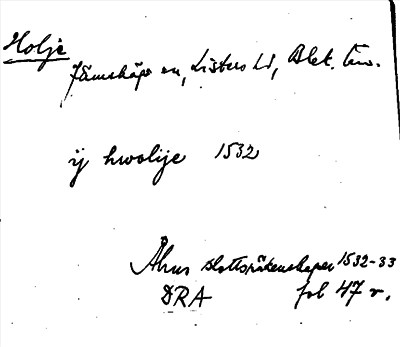 Holje
Jämshögs sn, Listers hd, Blek. län.
ij hwolije 1532
Åhus slottsräkenskaper 1532-33
DRA fol 47 r.